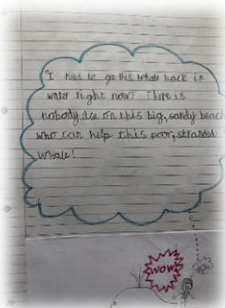 "I have to get this whale back in
water right now! There is
nobody else on this big, sandy beach
who can help this poor, stranded
whale!
WOW